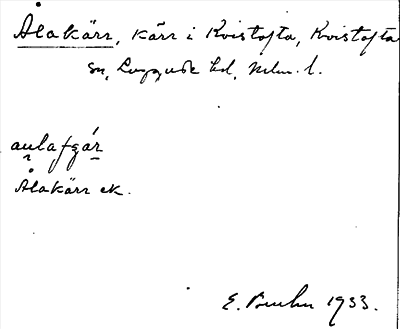 Ålakärr, kärr i Kvistofta, Kvistofta
sn, Luggude hd, Mlm. l.
aulafgár
Ålakärr ek.
E. 1933.